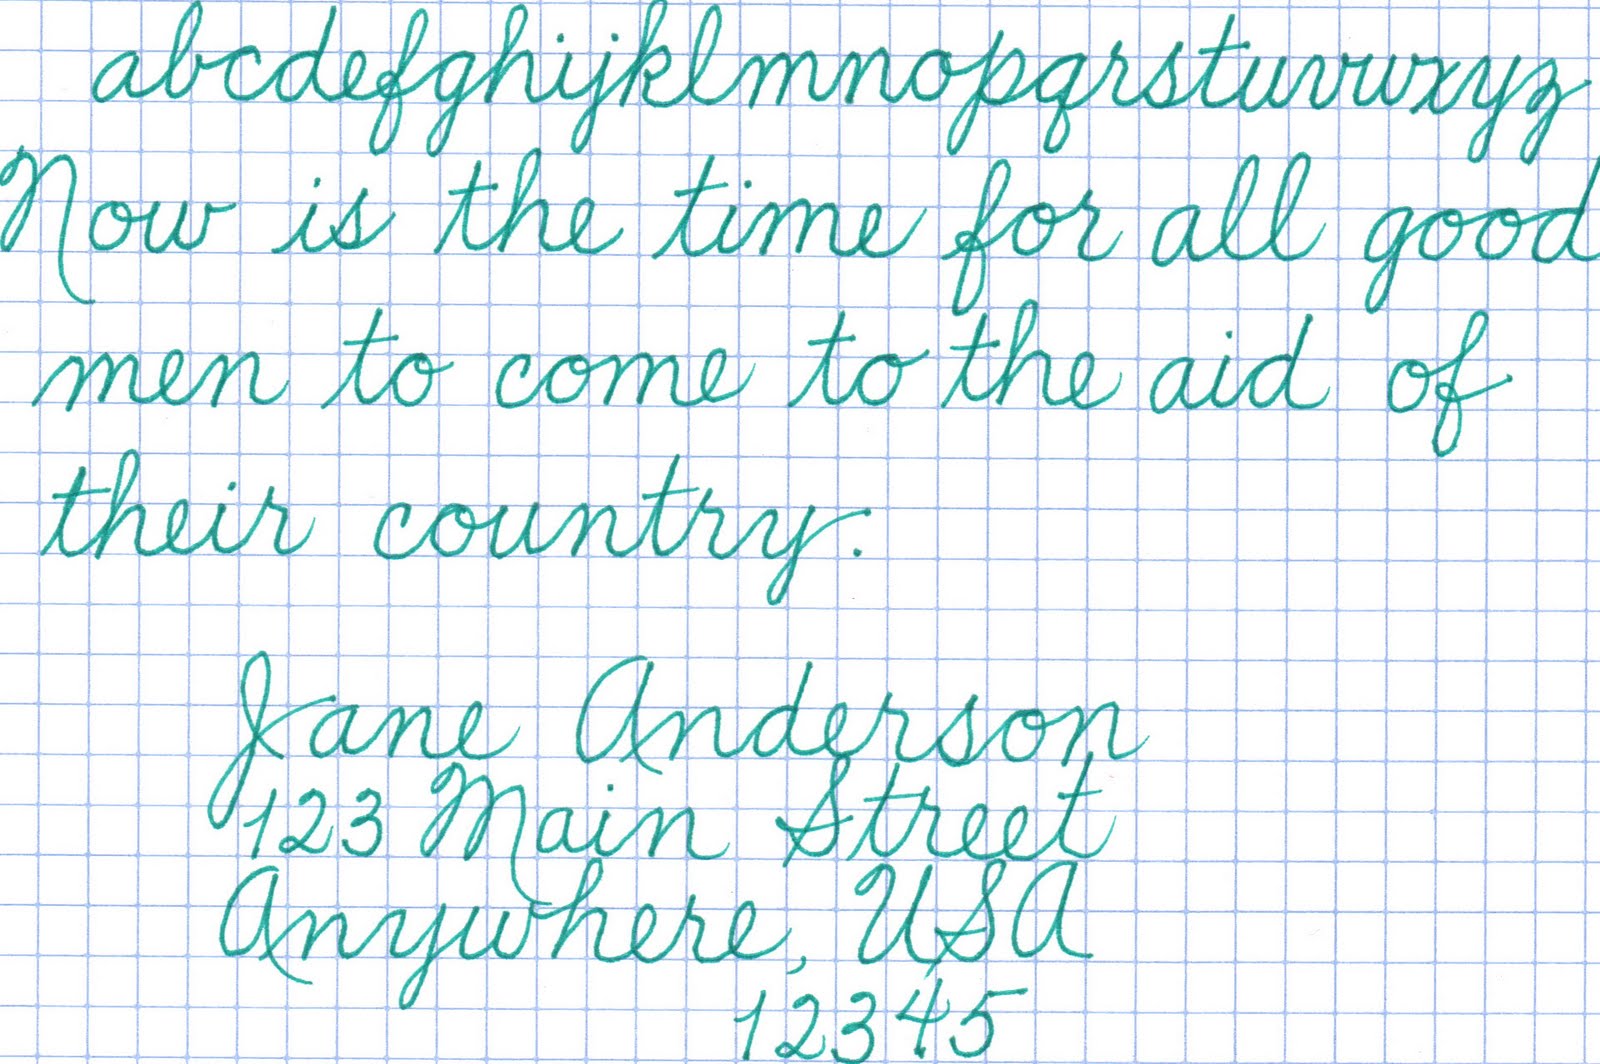 abcdefghijklmnopqrstuvwxyz
Now is the time for all good
men to come to the aid of
their country.
Jane Anderson
123 Main Street
Anywhere, USA
12345